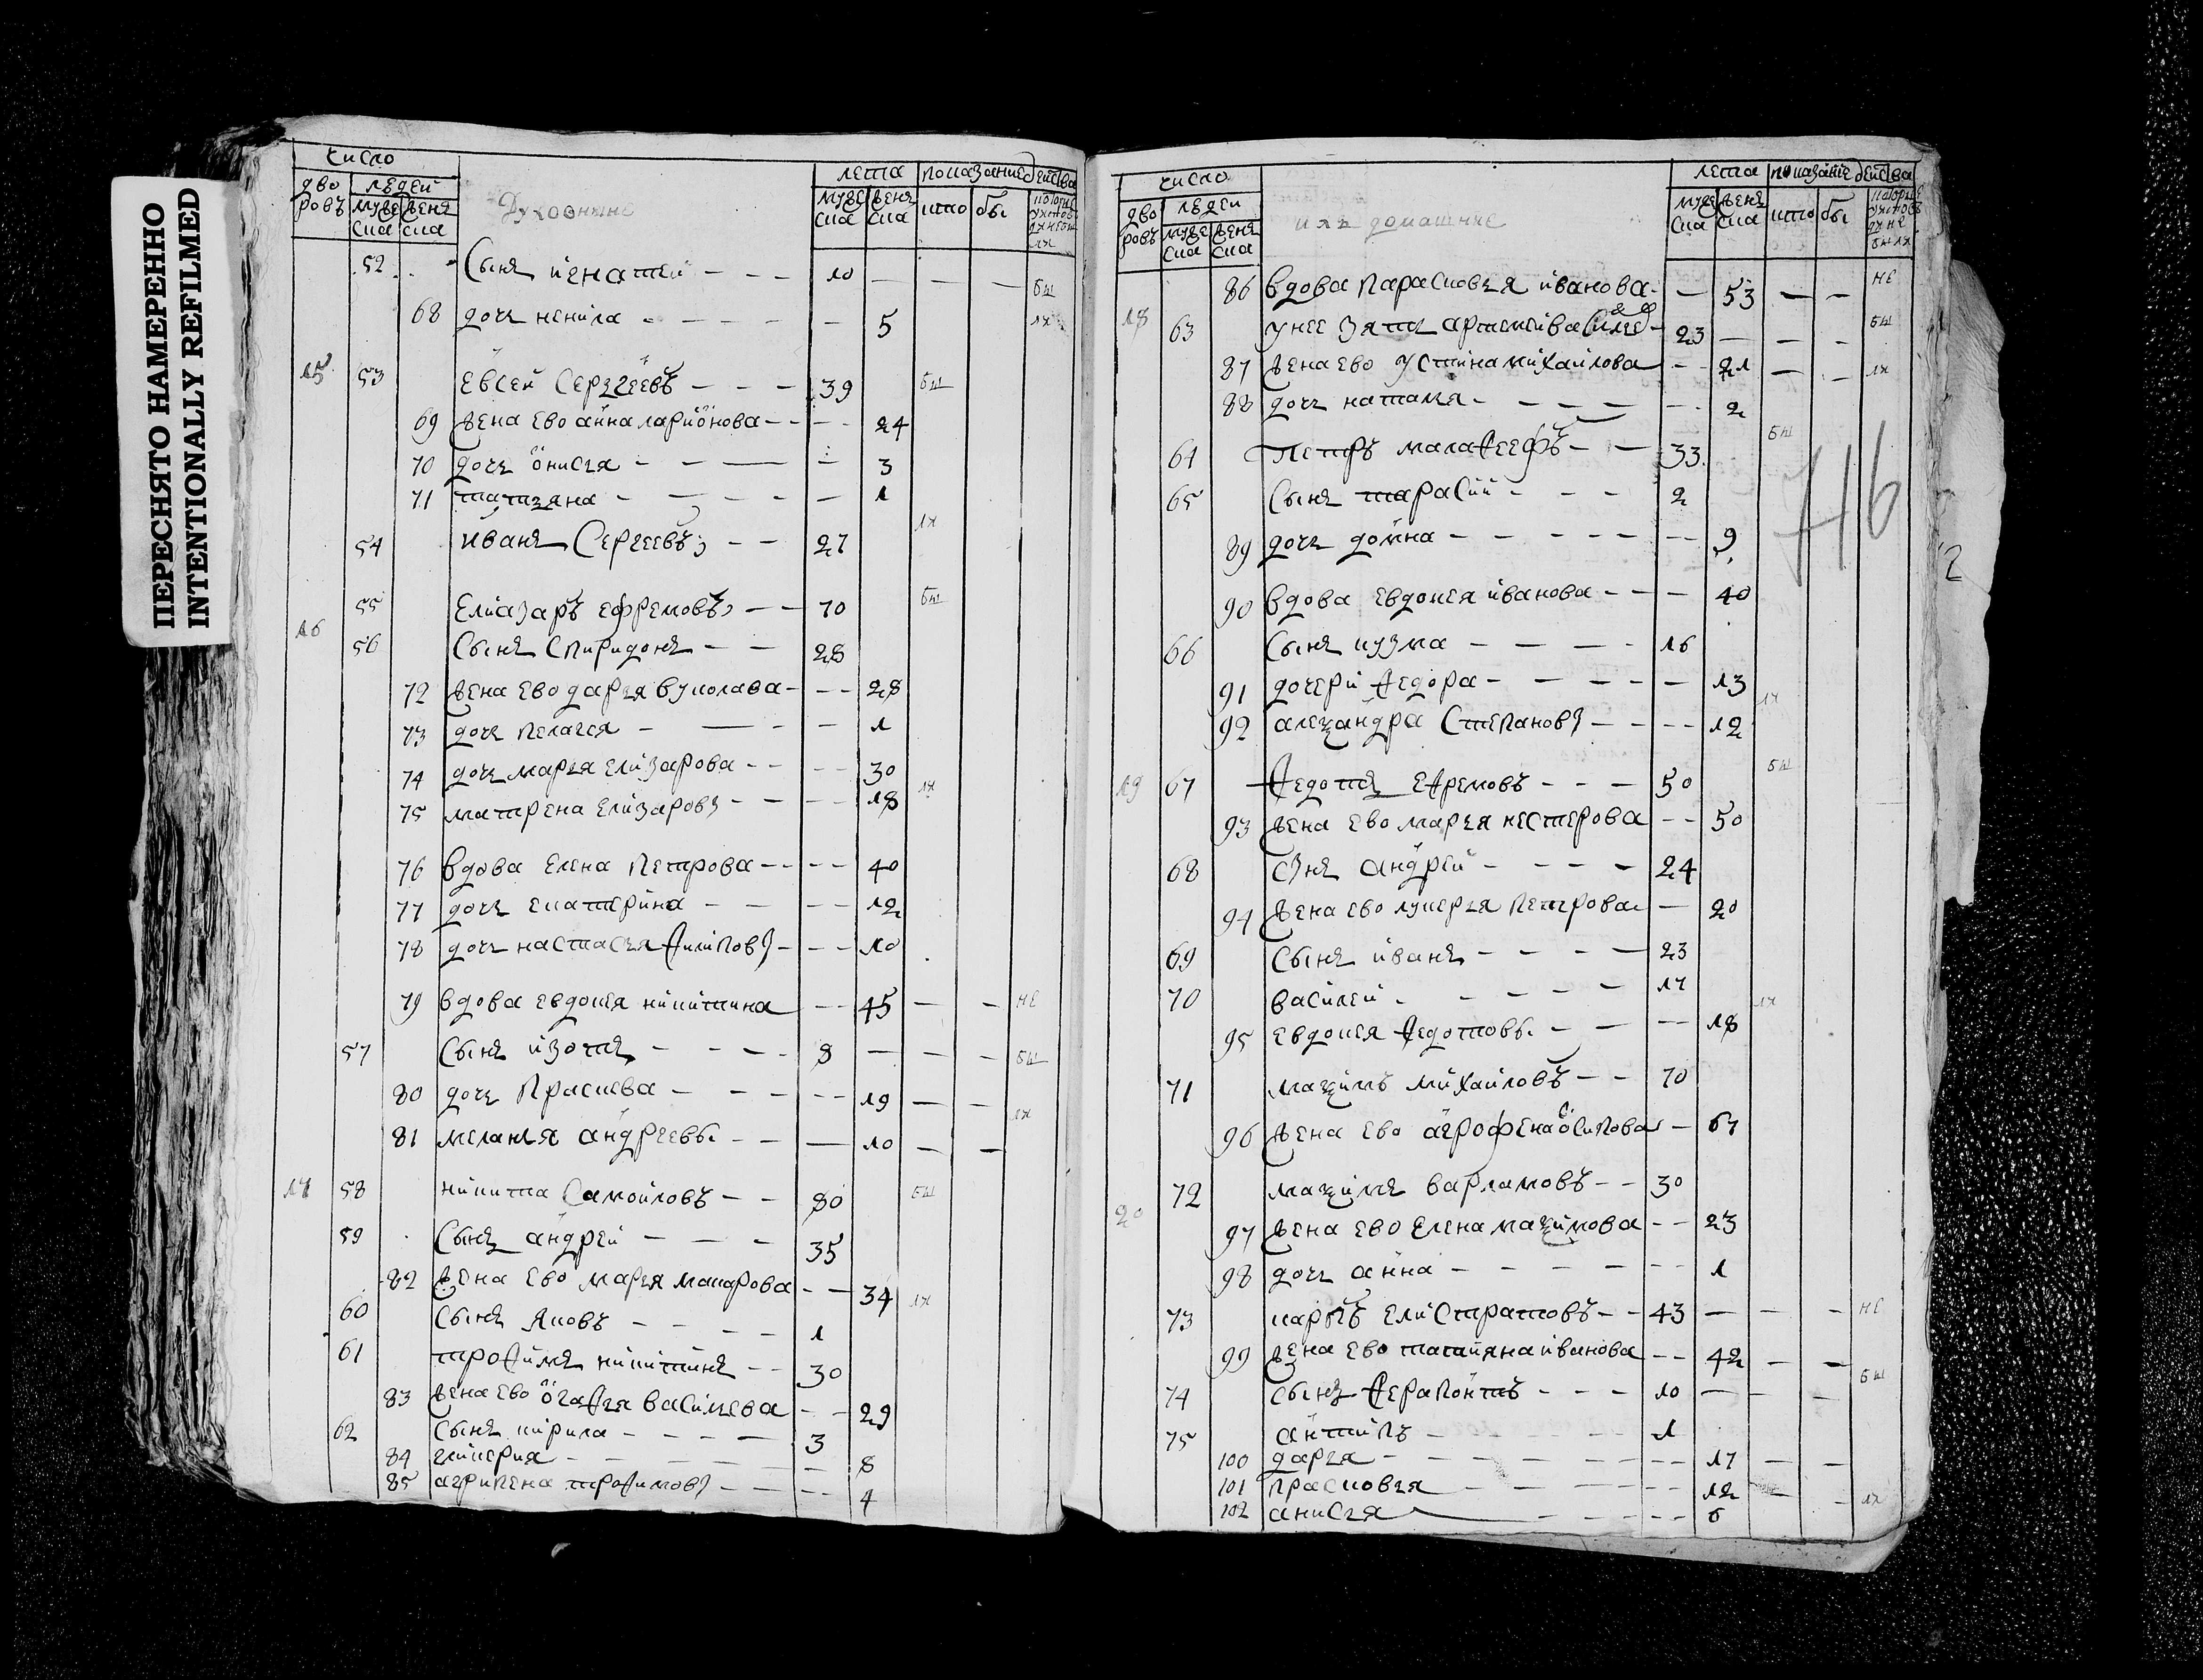 ПЕРЕСНЯТО НАМЕРЕННО
INTENTIONALLY REFILMED
число
дво ровъ
людей
муже ска
женя ска
Духовныя
лета
муже ска
женя ска
показание действа
кто
бы
52 Сынъ игнатей 10
68 дочь ненила 5
15 53 Евсей Сергеевъ 39
69 жена ево анна ларионова 24
70 дочь онисья 3
71 татьяна 1
54 иванъ Сергеевъ 27
55 Елиазаръ ефремовъ 70
16
56 Сынъ Спиридонъ 28
72 жена ево дарья вуколава 28
73 дочь пелагея 1
74 дочь марья елизарова 30
75 матрена елизаров 18
76 вдова елена петрова 40
77 дочь екатерина 12
78 дочь настасья филипов 10
79 вдова евдокея никитина 45 не
57 Сынъ изотъ 8
80 дочь праскева 19
81 меланья андреевы 10
17 58 никита Самойловъ 80
59 Сынъ андрей 35
82 жена ево марья макарова 34
60 Сынъ яковъ 1
61 трофимъ никитинъ 30
83 жена ево огафья васильева 29
62 Сынъ кирила 3
84 гликерия 8
85 агрипена трофимов 4
число
дво ровъ
людей
муже ска
женя ска
ихъ домашние
лета
муже ска
женя ска
показание действа
кто
бы
86 вдова парасковья иванова 53 не
18 63 у нее зять артемей васильев 23
87 жена ево устина михайлова 21
88 дочь наталья 2
64 Петръ малафеефъ 33
716
65 Сынъ тарасий 2
89 дочь домна 9
90 вдова евдокея иванова 40
66 Сынъ кузма 16
91 дочери федора 13
92 алеѯандра Степанов 12
19 67 федотъ ефремовъ 50
93 жена ево марья нестерова 50
68 Снъ андрей 24
94 жена ево лукерья петрова 20
69 Сынъ иванъ 23
70 василей 17
95 евдокея федотовы 18
71 маѯимъ михайловъ 70
96 жена ево агрофена осипова 67
72 маѯимъ варламовъ 30
20
97 жена ево елена маѯимова 23
98 дочь анна 1
73 карпъ елистратовъ 43 не
99 жена ево татияна иванова 42
74 Сынъ ферапонтъ 10
75 антипъ 1
100 дарья 17
101 прасковья 12
102 анисья 6